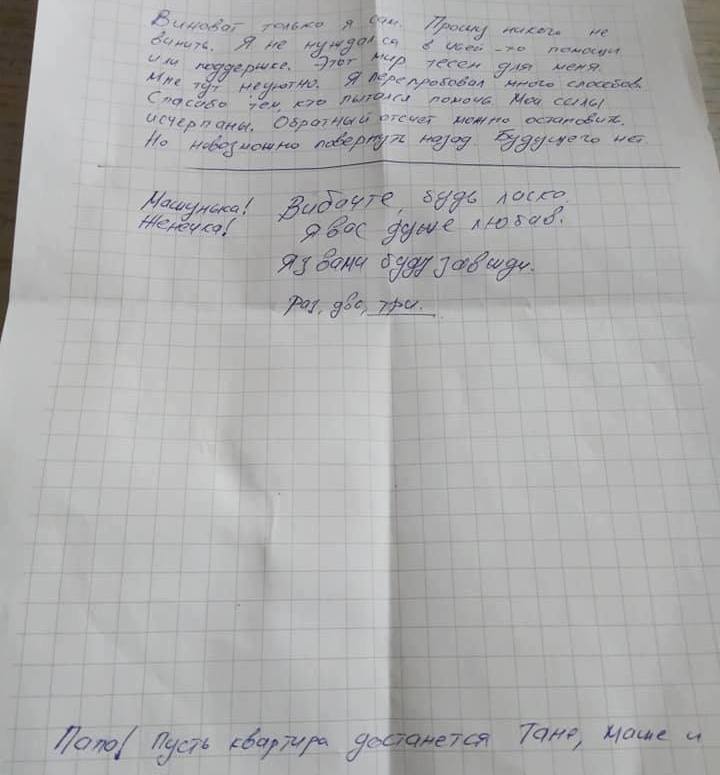 Виноват только я сам. Прошу никого не
винить. Я не нуждался в чьей-то помощи
или поддержке. Этот мир тесен для меня.
Мне тут неуютно. Я перепробовал много способов.
Спасибо тем, кто пытался помочь. Мои силы
исчерпаны. Обратный отсчет можно остановить.
Но невозможно повернуть назад. Будущего нет.
Машунька! Вибачте, будь ласка.
Женечка! Я вас дуже любав.
Я з вами буду завжди.
Раз, два, три.
Папа! Пусть квартира достанется Тане, Маше и